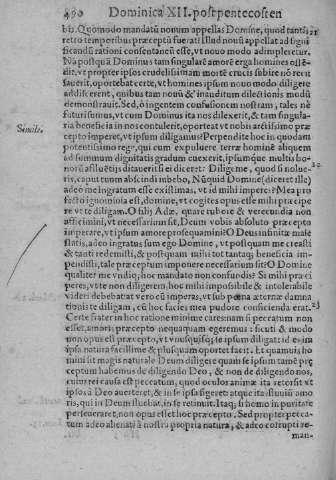 490 Dominica XII. post pentecosten
bis. Quomodo mandatū nouum appellas Domine, quod tantis
retro temporibus præceptū fuerat? Illud nouū appellat ad signi
ficandū rationi consentaneū esse, vt nouo modo adimpleretur.
Na postquā Dominus tam singularē amorē erga homines osté-
dit, vt propter ipsos crudelissimam mortē crucis subire nō recu
sauerit, oportebat certe, vt homines ipsum nouo modo diligere
addiscerent, quibus tam nouū & inauditum dilectionis modū
demonstrauit. Sed, ô ingentem confusionem nostram, tales nē
futuri simus, vt cum Dominus ita nos dilexerit, & tam singula-
ria beneficia in nos contulerit, oporteat vt nobis arctissimo præ
cepto imperet, vt ipsum diligamus? Perpendite hoc in quodam
Simile.
potentissimo rege, qui cum expuluere terræ hominē aliquem
ad summum dignitatis gradum euexerit, ipsumque multis bo-
norū affluētijs ditauerit si ei diceret: Dilige me, quod si nolue-
ris, caput tuum abscindi iubebo, Nūquid Domine (diceret ille)
adeo me ingratum esse existimas, vt id mihi imperes? Mea pro
fecto ignominia est, domine, vt cogites opus esse mihi præcipe
re vt te diligam. O filij Adæ, quare rubore & verecundia non
afficimini, vt necessarium sit, Deum vobis absoluto præcepto
imperare, vt ipsum amore prosequamini? O Deus infinitæ maie
statis, adeo ingratus sum ego Domine, vt postquam me creasti
& tanti redemisti, & postquam mihi tot tantaque beneficia im-
pendisti, tale præceptum imponere necessarium sit? O Domine
qualiter me vndique, hoc mandato non confundis? Si mihi præci
peres, vt te non diligerem, hoc mihi impossibile & intolerabile
videri debebat: at vero cū imperas, vt sub pœna æternæ damna
tionis te diligam, cū hoc facies mea pudore conficienda erat.
Certe frater in hoc ratione minime careamus si peccatum non
esset, amoris præcepto nequaquam egeremus: sicuti & modo
non opus est præcepto, vt vnusquisque se ipsum diligat: id ex ip-
ipsa natura facillime & plusquam oportet facit. Et quamuis, ho
mini sit magis naturale Deum diligere quam se ipsum tamē præ
ceptum habemus de diligendo Deo, & non de diligendo nos,
cuius rei causa est peccatum, quod oculos animæ ita retorsit vt
ipsos à Deo auerteret, & in se ipsa sigeret: atque ita illuuiū amo
ris, qui in Deum fluebat, in se retinuit. Itaque si homo in puritate
perseueraret, non opus esset hoc præcepto. Sed propter pecca-
tum adeo alienati à nostra propria natura, & adeo corrupti re-
man-